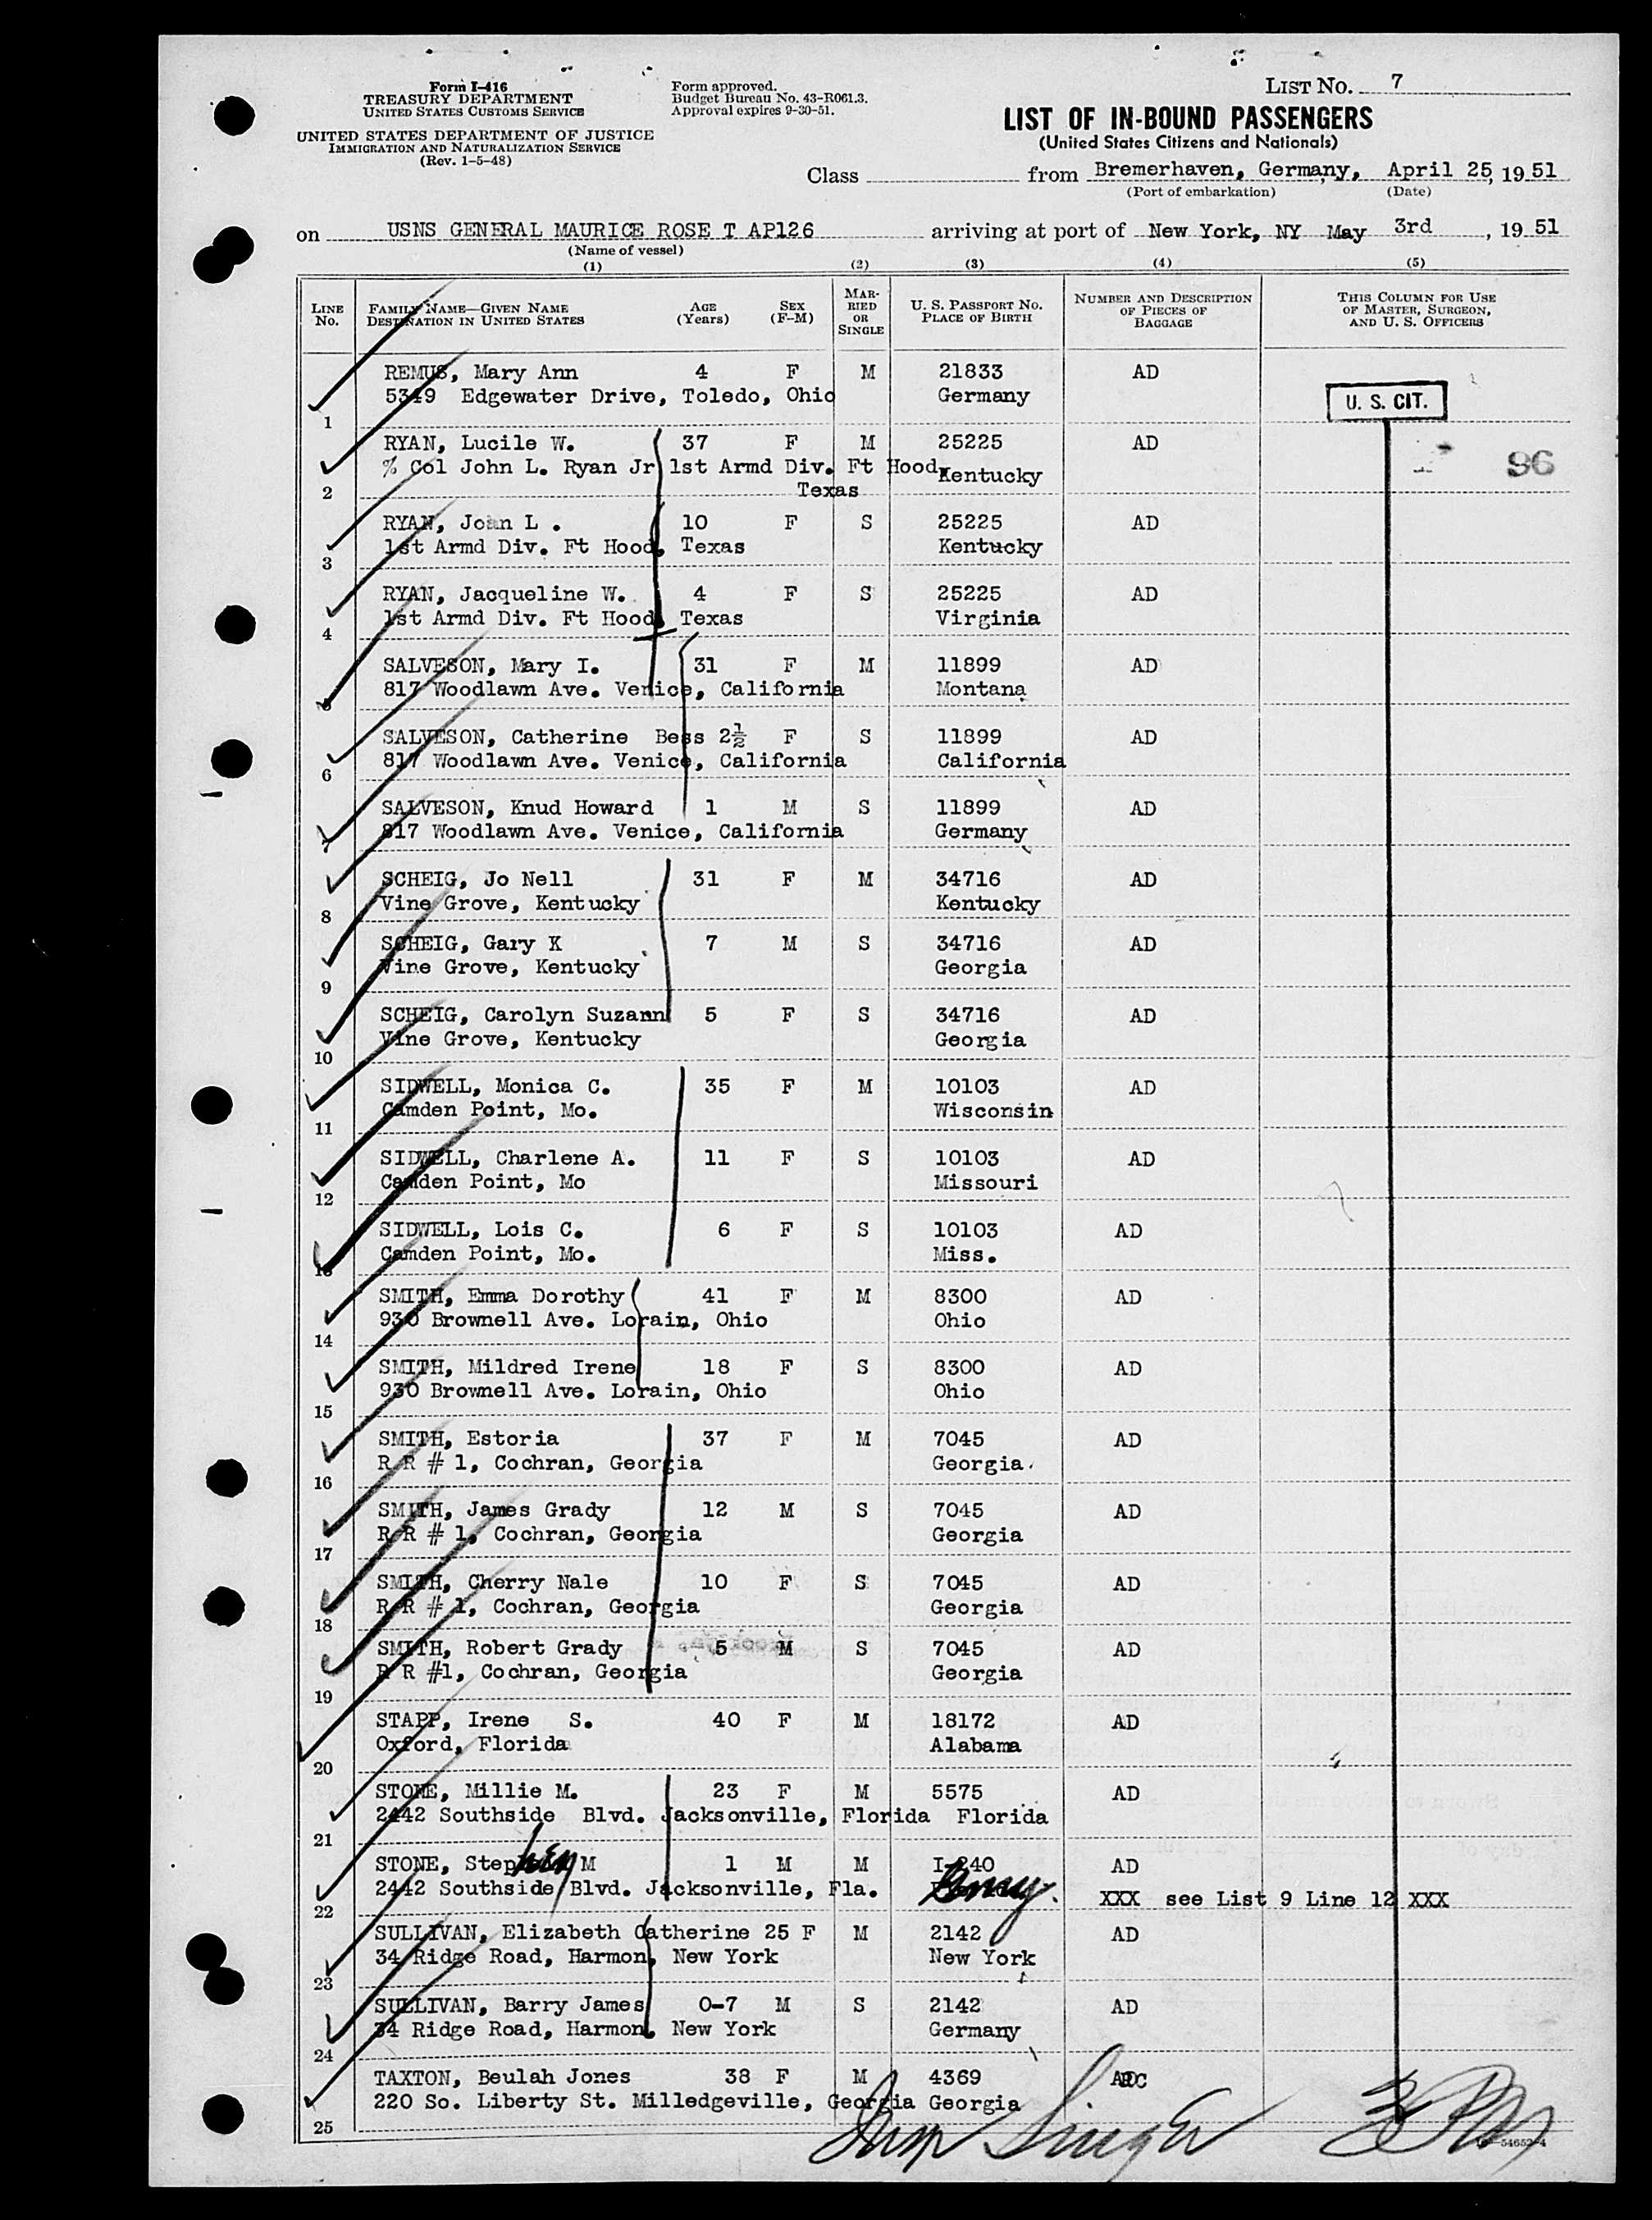 Form I-416
TREASURY DEPARTMENT
UNITED STATES CUSTOMS SERVICE
UNITED STATES DEPARTMENT OF JUSTICE
IMMIGRATION AND NATURALIZATION SERVICE
(Rev. 1-5-48)
Form approved.
Budget Bureau No. 43-R061.3.
Approval expires 9-30-51.
LIST NO. 7
LIST OF IN-BOUND PASSENGERS
(United States Citizens and Nationals)
Class from Bremerhaven, Germany, April 25, 19 51
(Port of embarkation) (Date)
on USNS GENERAL MAURICE ROSE T AP126 arriving at port of New York, NY May 3rd, 19 51
(Name of vessel)
(1) (2) (3) (4) (5)
LINE NO. FAMILY NAME—GIVEN NAME DESTINATION IN UNITED STATES AGE (Years) SEX (F-M) MARRIED OR SINGLE U. S. PASSPORT NO. PLACE OF BIRTH NUMBER AND DESCRIPTION OF PIECES OF BAGGAGE THIS COLUMN FOR USE OF MASTER, SURGEON, AND U. S. OFFICERS
REMUS, Mary Ann 4 F M 21833 AD
5349 Edgewater Drive, Toledo, Ohio Germany U. S. CIT.
1
RYAN, Lucile W. 37 F M 25225 AD
% Col John L. Ryan Jr 1st Armd Div. Ft Hood, Kentucky 96
2 Texas
RYAN, Joan L . 10 F S 25225 AD
1st Armd Div. Ft Hood, Texas Kentucky
3
RYAN, Jacqueline W. 4 F S 25225 AD
1st Armd Div. Ft Hood, Texas Virginia
4
SALVESON, Mary I. 31 F M 11899 AD
817 Woodlawn Ave. Venice, California Montana
5
SALVESON, Catherine Bess 2½ F S 11899 AD
817 Woodlawn Ave. Venice, California California
6
SALVESON, Knud Howard 1 M S 11899 AD
817 Woodlawn Ave. Venice, California Germany
7
SCHEIG, Jo Nell 31 F M 34716 AD
Vine Grove, Kentucky Kentucky
8
SCHEIG, Gary K 7 M S 34716 AD
Vine Grove, Kentucky Georgia
9
SCHEIG, Carolyn Suzann 5 F S 34716 AD
Vine Grove, Kentucky Georgia
10
SIDWELL, Monica C. 35 F M 10103 AD
Camden Point, Mo. Wisconsin
11
SIDWELL, Charlene A. 11 F S 10103 AD
Camden Point, Mo Missouri
12
SIDWELL, Lois C. 6 F S 10103 AD
Camden Point, Mo. Miss.
13
SMITH, Emma Dorothy 41 F M 8300 AD
930 Brownell Ave. Lorain, Ohio Ohio
14
SMITH, Mildred Irene 18 F S 8300 AD
930 Brownell Ave. Lorain, Ohio Ohio
15
SMITH, Estoria 37 F M 7045 AD
R R # 1, Cochran, Georgia Georgia
16
SMITH, James Grady 12 M S 7045 AD
R R # 1, Cochran, Georgia Georgia
17
SMITH, Cherry Nale 10 F S 7045 AD
R R # 1, Cochran, Georgia Georgia
18
SMITH, Robert Grady 5 M S 7045 AD
R R #1, Cochran, Georgia Georgia
19
STAPP, Irene S. 40 F M 18172 AD
Oxford, Florida Alabama
20
STONE, Millie M. 23 F M 5575 AD
2442 Southside Blvd. Jacksonville, Florida Florida
21
STONE, Stephen M 1 M M I-240 AD
2442 Southside Blvd. Jacksonville, Fla. Germy. XXX see List 9 Line 12 XXX
22
SULLIVAN, Elizabeth Catherine 25 F M 2142 AD
34 Ridge Road, Harmon, New York New York
23
SULLIVAN, Barry James 0-7 M S 2142 AD
34 Ridge Road, Harmon, New York Germany
24
TAXTON, Beulah Jones 38 F M 4369
220 So. Liberty St. Milledgeville, Georgia Georgia
25
54652-4